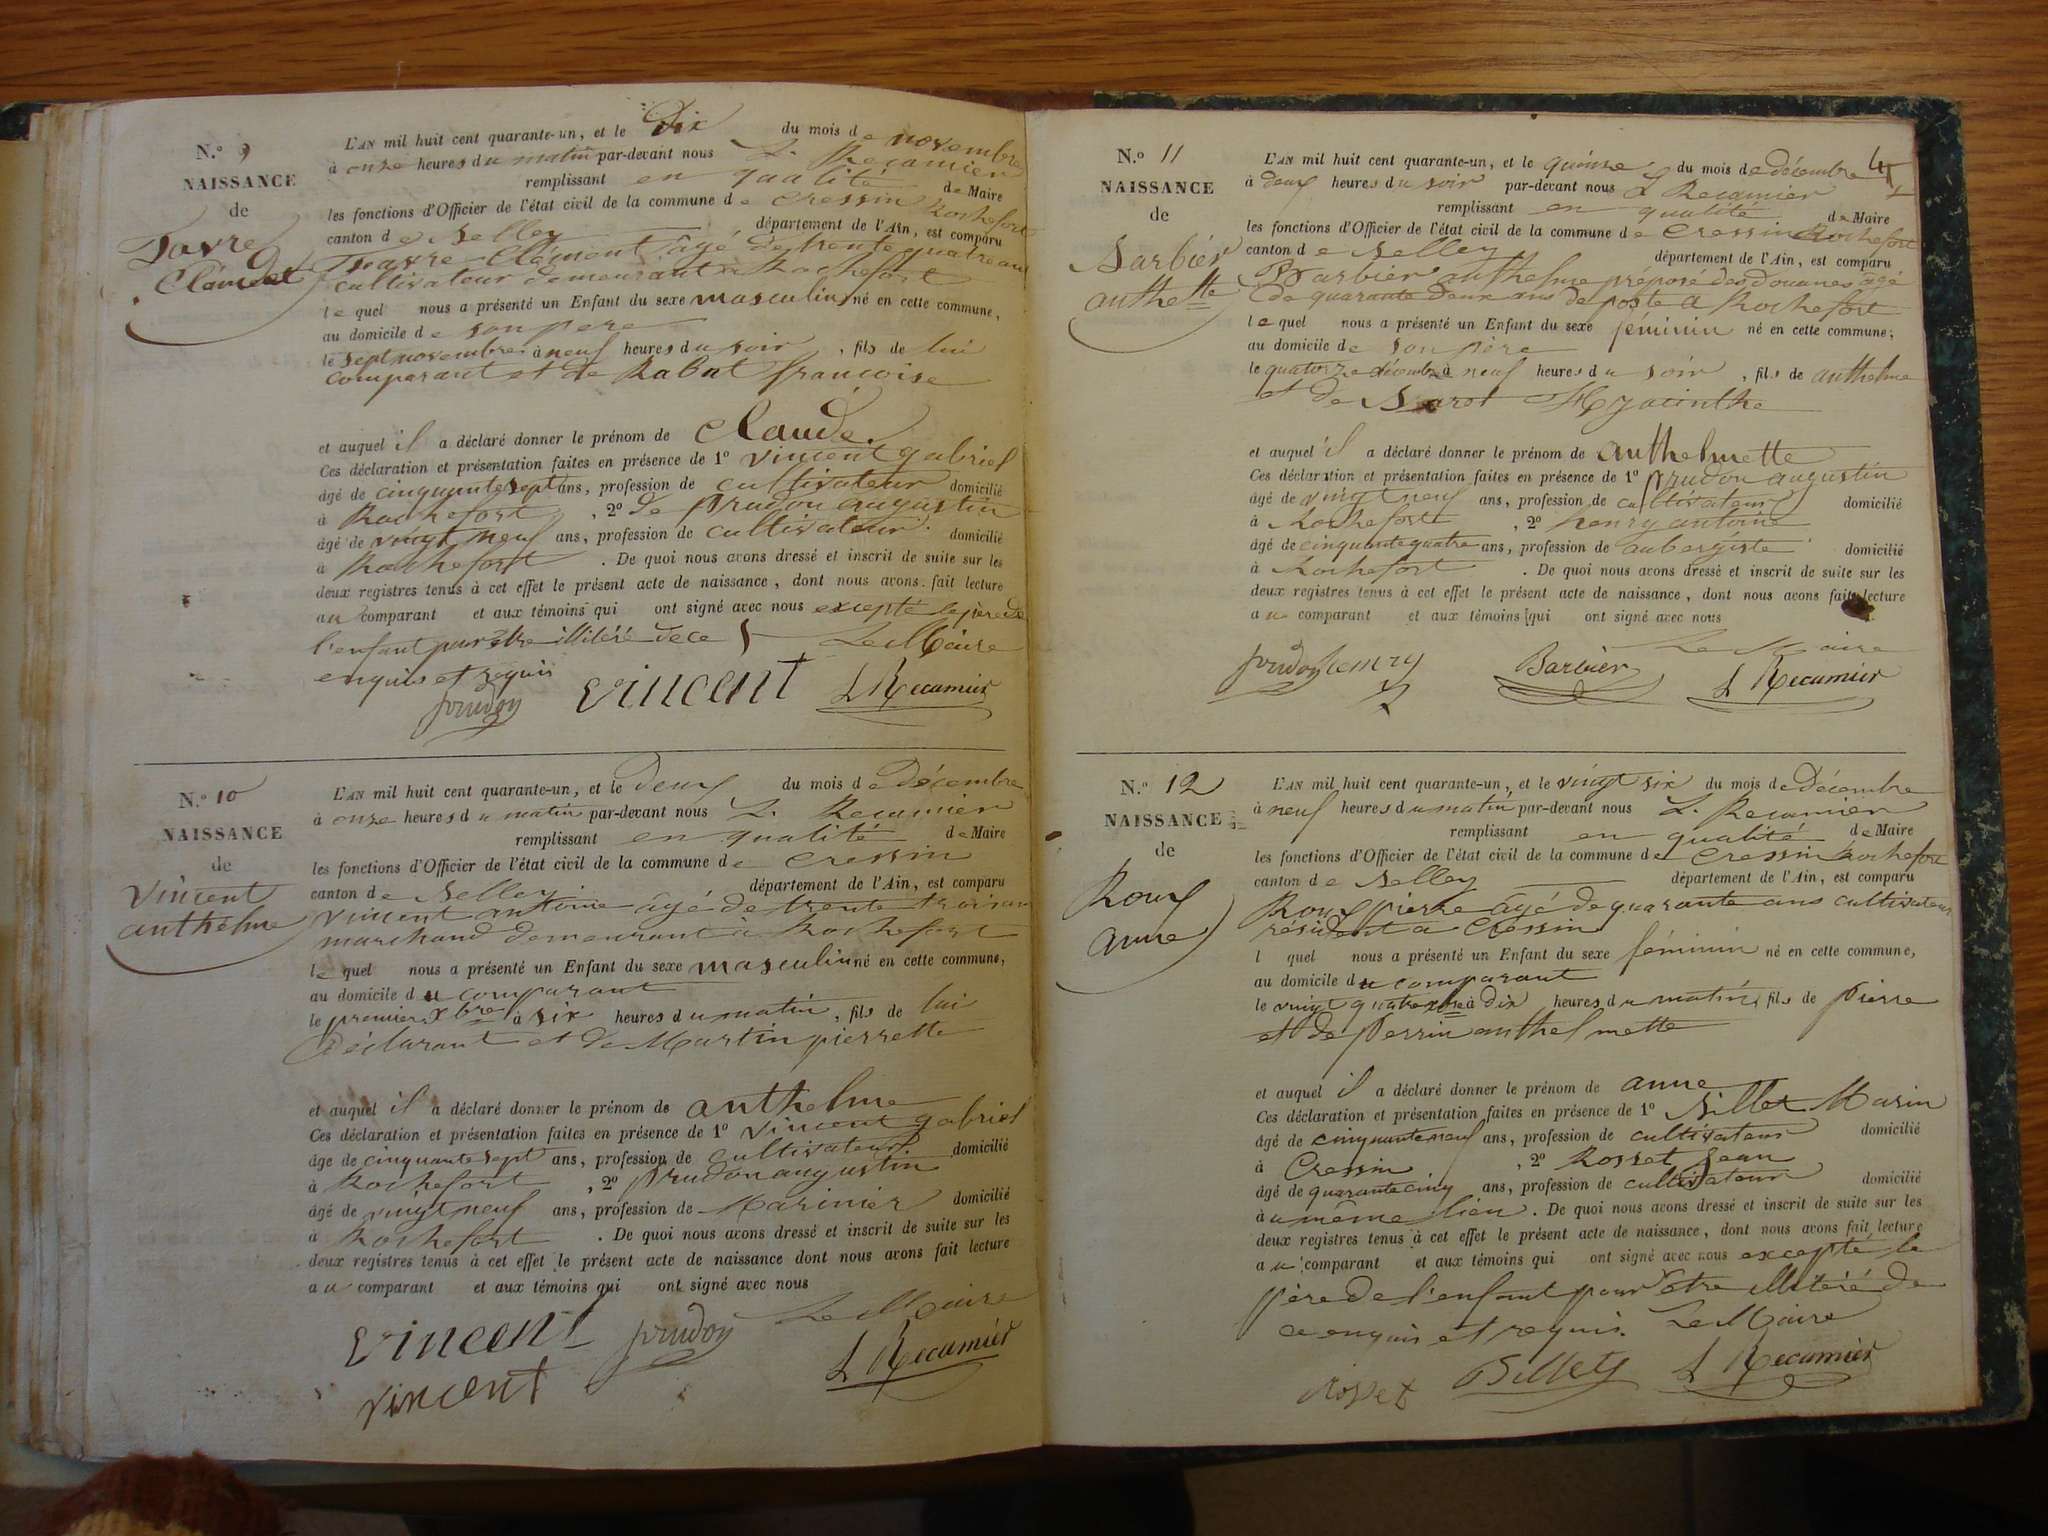 N.º 9
NAISSANCE
de
Favre
Clément
L'AN mil huit cent quarante-un, et le Dix du mois de novembre
à onze heures du matin par-devant nous L. Recamier
remplissant en qualité de Maire
les fonctions d'Officier de l'état civil de la commune de Cressin Rochefort
canton de Belley département de l'Ain, est comparu
Favre Clément, âgé de trente quatre ans
cultivateur demeurant à Rochefort
lequel nous a présenté un Enfant du sexe masculin né en cette commune,
au domicile de son pere
le sept novembre à neuf heures du soir, fils de lui
comparant et de Rabut françoise
et auquel il a déclaré donner le prénom de Claude.
Ces déclaration et présentation faites en présence de 1º vincent gabriel
âgé de cinquante sept ans, profession de cultivateur domicilié
à Rochefort, 2º de Prudon augustin
âgé de vingt neuf ans, profession de cultivateur domicilié
à Rochefort. De quoi nous avons dressé et inscrit de suite sur les
deux registres tenus à cet effet le présent acte de naissance, dont nous avons fait lecture
au comparant et aux témoins qui ont signé avec nous excepté le père de
l'enfant pour être illitéré de ce Le Maire
enquis et requis
prudon vincent L Recamier
N.º 10
NAISSANCE
de
Vincent
anthelme
L'AN mil huit cent quarante-un, et le deux du mois de Décembre
à onze heures du matin par-devant nous L. Recamier
remplissant en qualité de Maire
les fonctions d'Officier de l'état civil de la commune de Cressin
canton de Belley département de l'Ain, est comparu
vincent antoine agé de trente trois ans
marchand demeurant à Rochefort
lequel nous a présenté un Enfant du sexe masculin né en cette commune,
au domicile du comparant
le premier Xbre à six heures du matin, fils de lui
déclarant et de Martin pierrette
et auquel il a déclaré donner le prénom de anthelme
Ces déclaration et présentation faites en présence de 1º vincent gabriel
âge de cinquante sept ans, profession de cultivateur domicilié
à Rochefort, 2º prudon augustin
âgé de vingt neuf ans, profession de Marinier domicilié
à Rochefort. De quoi nous avons dressé et inscrit de suite sur les
deux registres tenus à cet effet le présent acte de naissance dont nous avons fait lecture
au comparant et aux témoins qui ont signé avec nous
Le Maire
vincent prudon L Recamier
vincent
N.º 11
NAISSANCE
de
Barbier
anthette
L'AN mil huit cent quarante-un, et le quinze du mois de décembre
à deux heures du soir par-devant nous L Recamier
remplissant en qualité de Maire
les fonctions d'Officier de l'état civil de la commune de Cressin Rochefort
canton de Belley département de l'Ain, est comparu
Barbier anthelme préposé des Douanes agé
de quarante deux ans de poste a Rochefort
lequel nous a présenté un Enfant du sexe féminin né en cette commune;
au domicile de son père
le quatorze décembre à neuf heures du soir, fils de anthelme
et de Hyacinthe
et auquel il a déclaré donner le prénom de anthelmette
Ces déclaration et présentation faites en présence de 1º prudon augustin
âgé de vingt neuf ans, profession de cultivateur domicilié
à Rochefort, 2º henry antoine
âgé de cinquante quatre ans, profession de aubergiste domicilié
à Rochefort. De quoi nous avons dressé et inscrit de suite sur les
deux registres tenus à cet effet le présent acte de naissance, dont nous avons fait lecture
au comparant et aux témoins qui ont signé avec nous
Le Maire
prudon henry Barbier L Recamier
N.º 12
NAISSANCE
de
Roux
anne
L'AN mil huit cent quarante-un, et le vingt six du mois de Décembre
à neuf heures du matin par-devant nous L. Recamier
remplissant en qualité de Maire
les fonctions d'Officier de l'état civil de la commune de Cressin Rochefort
canton de Belley département de l'Ain, est comparu
Roux pierre agé de quarante ans cultivateur
résident a Cressin
l quel nous a présenté un Enfant du sexe féminin né en cette commune,
au domicile du comparant
le vingt quatre Xbre à dix heures du matin, fils de pierre
et de perrin anthelmette
et auquel il a déclaré donner le prénom de anne
Ces déclaration et présentation faites en présence de 1º Billet Marin
âgé de cinquante neuf ans, profession de cultivateur domicilié
à Cressin, 2º Rosset Jean
âgé de quarante cinq ans, profession de cultivateur domicilié
au même lieu. De quoi nous avons dressé et inscrit de suite sur les
deux registres tenus à cet effet le présent acte de naissance, dont nous avons fait lecture
au comparant et aux témoins qui ont signé avec nous excepté le
père de l'enfant pour être illitéré de
ce enquis et requis. Le Maire
Rosset Billet L Recamier